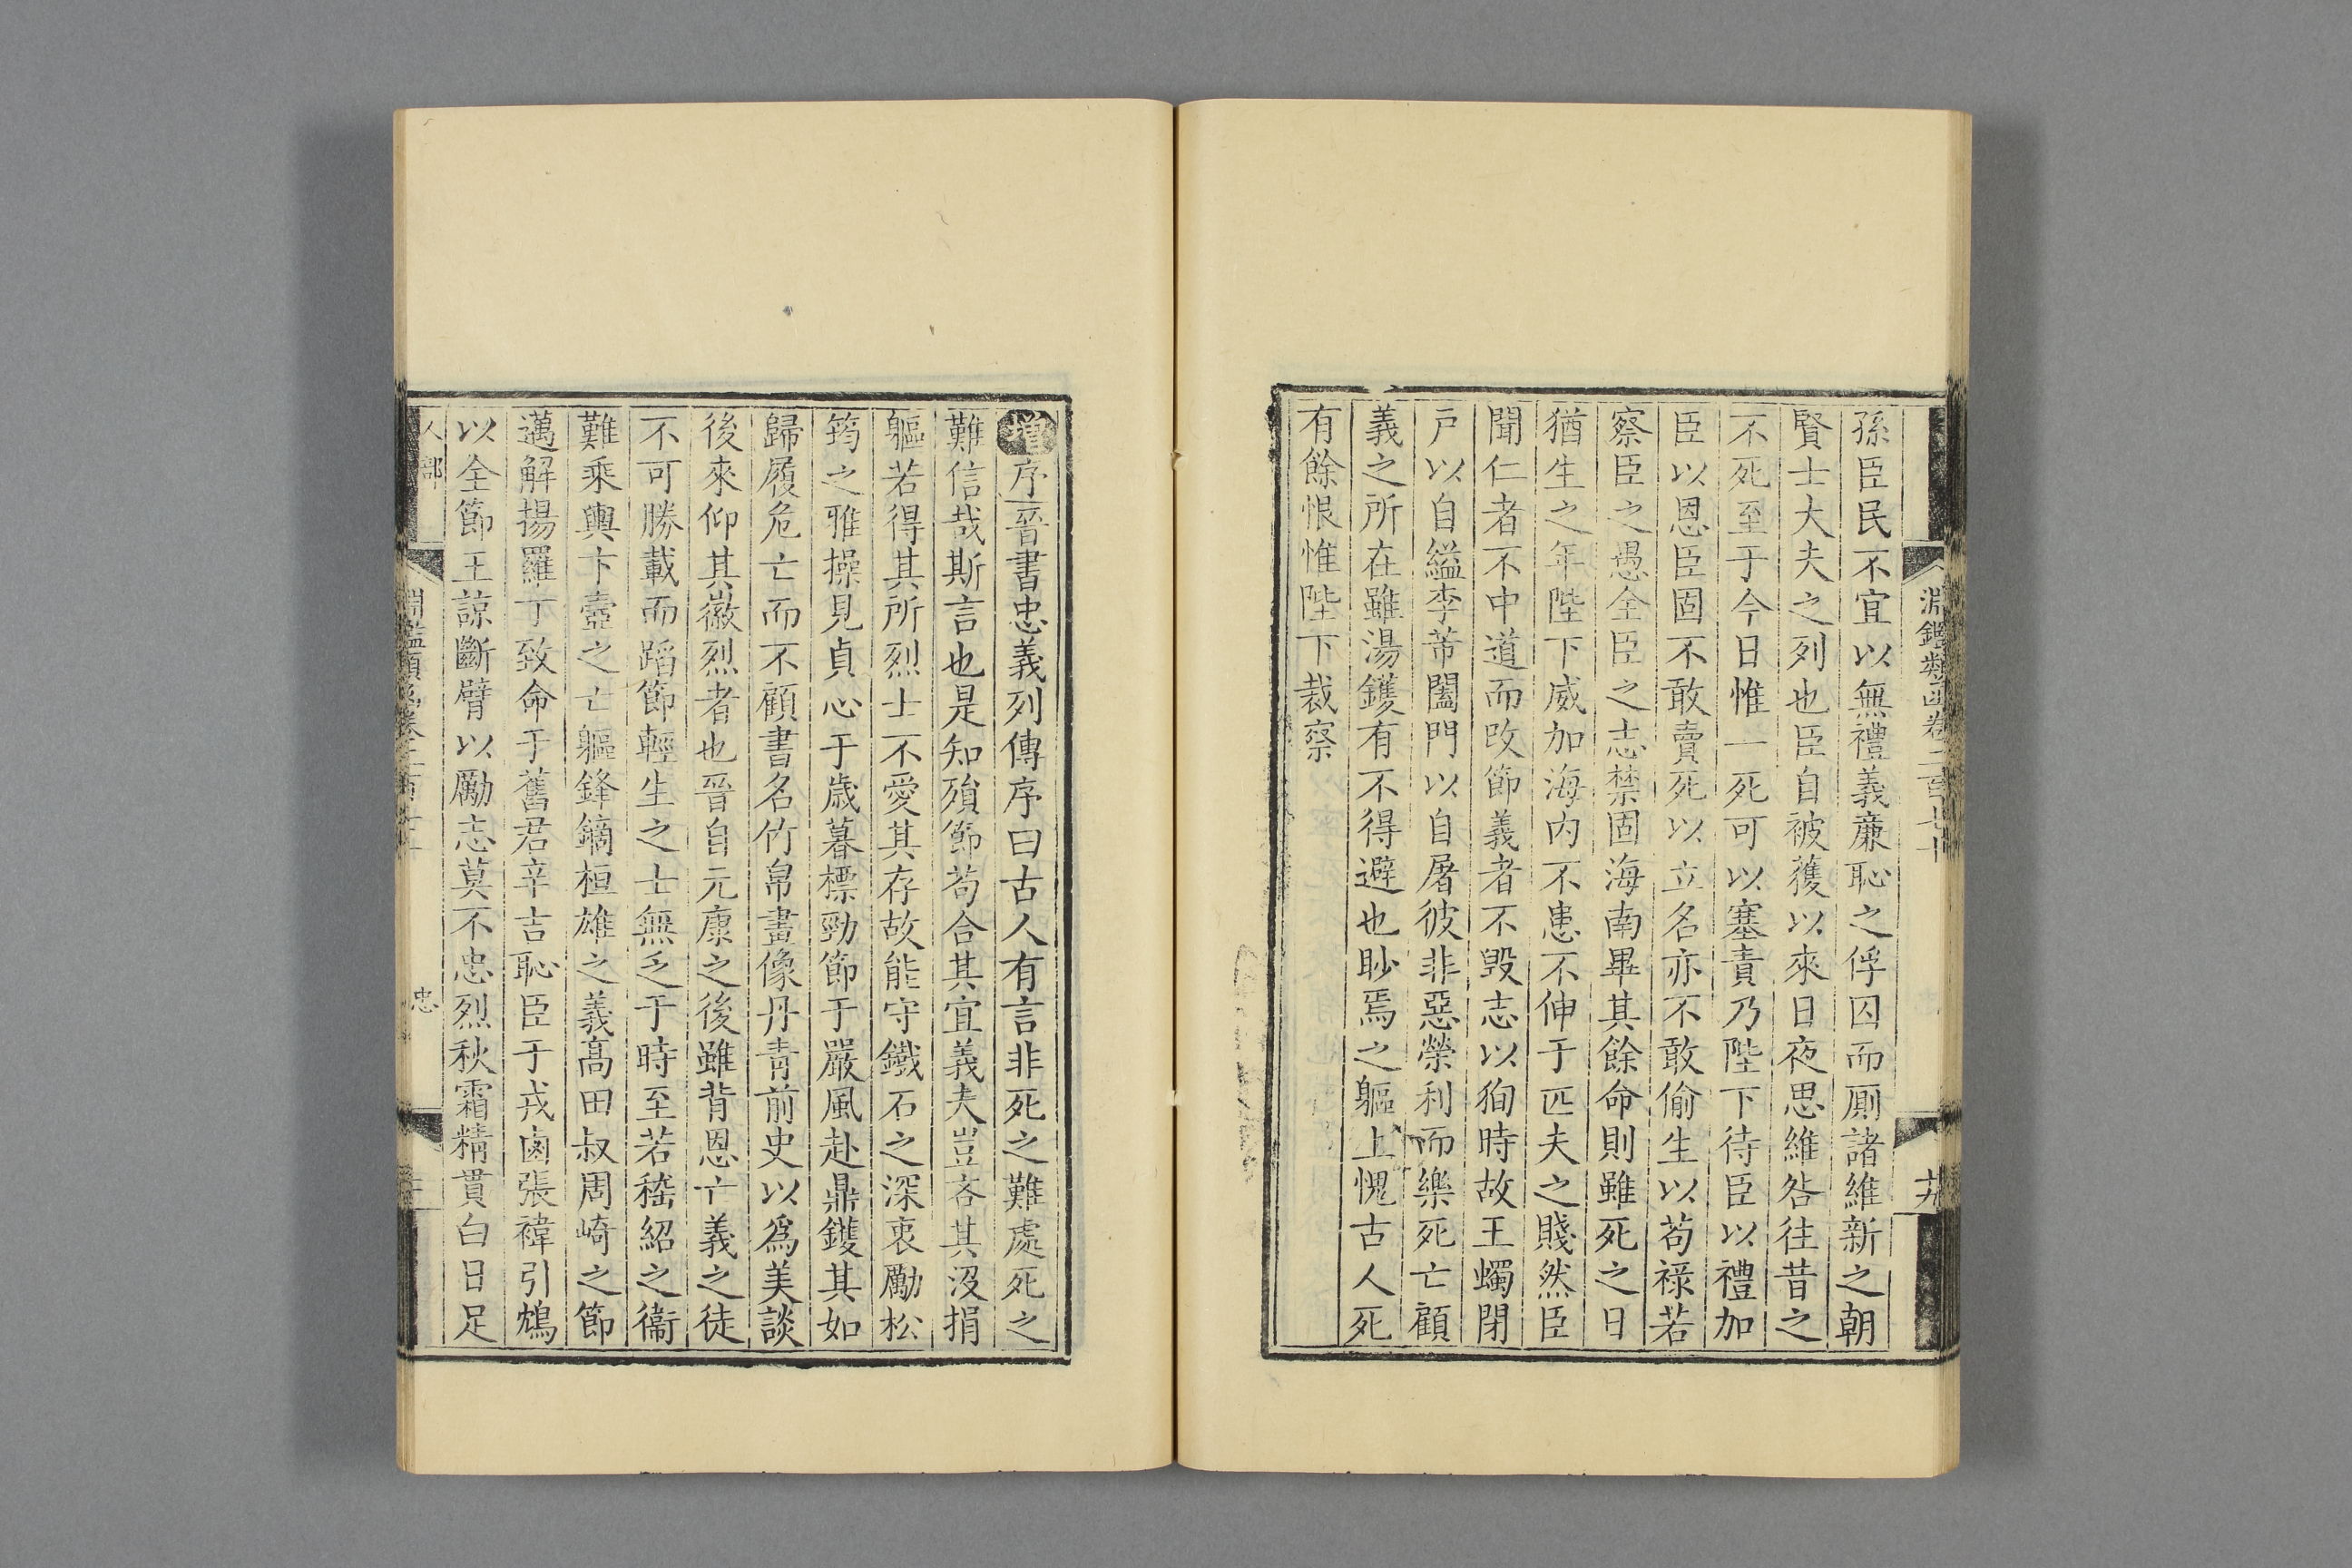 孫臣民不宜以無禮義廉恥之俘囚而厠諸維新之朝
賢士大夫之列也臣自被獲以來日夜思維咎往昔之
不死至于今日惟一死可以塞責乃陛下待臣以禮加
臣以恩臣固不敢賣死以立名亦不敢偷生以茍祿若
察臣之愚全臣之志禁固海南畢其餘命則雖死之日
猶生之年陛下威加海内不患不伸于匹夫之賤然臣
聞仁者不中道而改節義者不毀志以狥時故王蠋閉
戸以自縊李芾闔門以自屠彼非惡榮利而樂死亡顧
義之所在雖湯鑊有不得避也眇焉之軀上愧古人死
有餘恨惟陛下裁察
增序晉書忠義列傳序曰古人有言非死之難處死之
難信哉斯言也是知殞節茍合其宜義夫豈吝其沒捐
軀若得其所烈士不愛其存故能守鐵石之深衷勵松
筠之雅操見貞心于歳暮標勁節于嚴風赴鼎鑊其如
歸履危亡而不顧書名竹帛畫像丹青前史以爲美談
後來仰其徽烈者也晉自元康之後雖背恩亡義之徒
不可勝載而蹈節輕生之士無乏于時至若嵇紹之衞
難乘輿卞壼之亡軀鋒鏑桓雄之義髙田叔周崎之節
邁解揚羅丁致命于舊君辛吉恥臣于戎鹵張禕引鴆
以全節王諒斷臂以勵志莫不忠烈秋霜精貫白日足
人部
忠